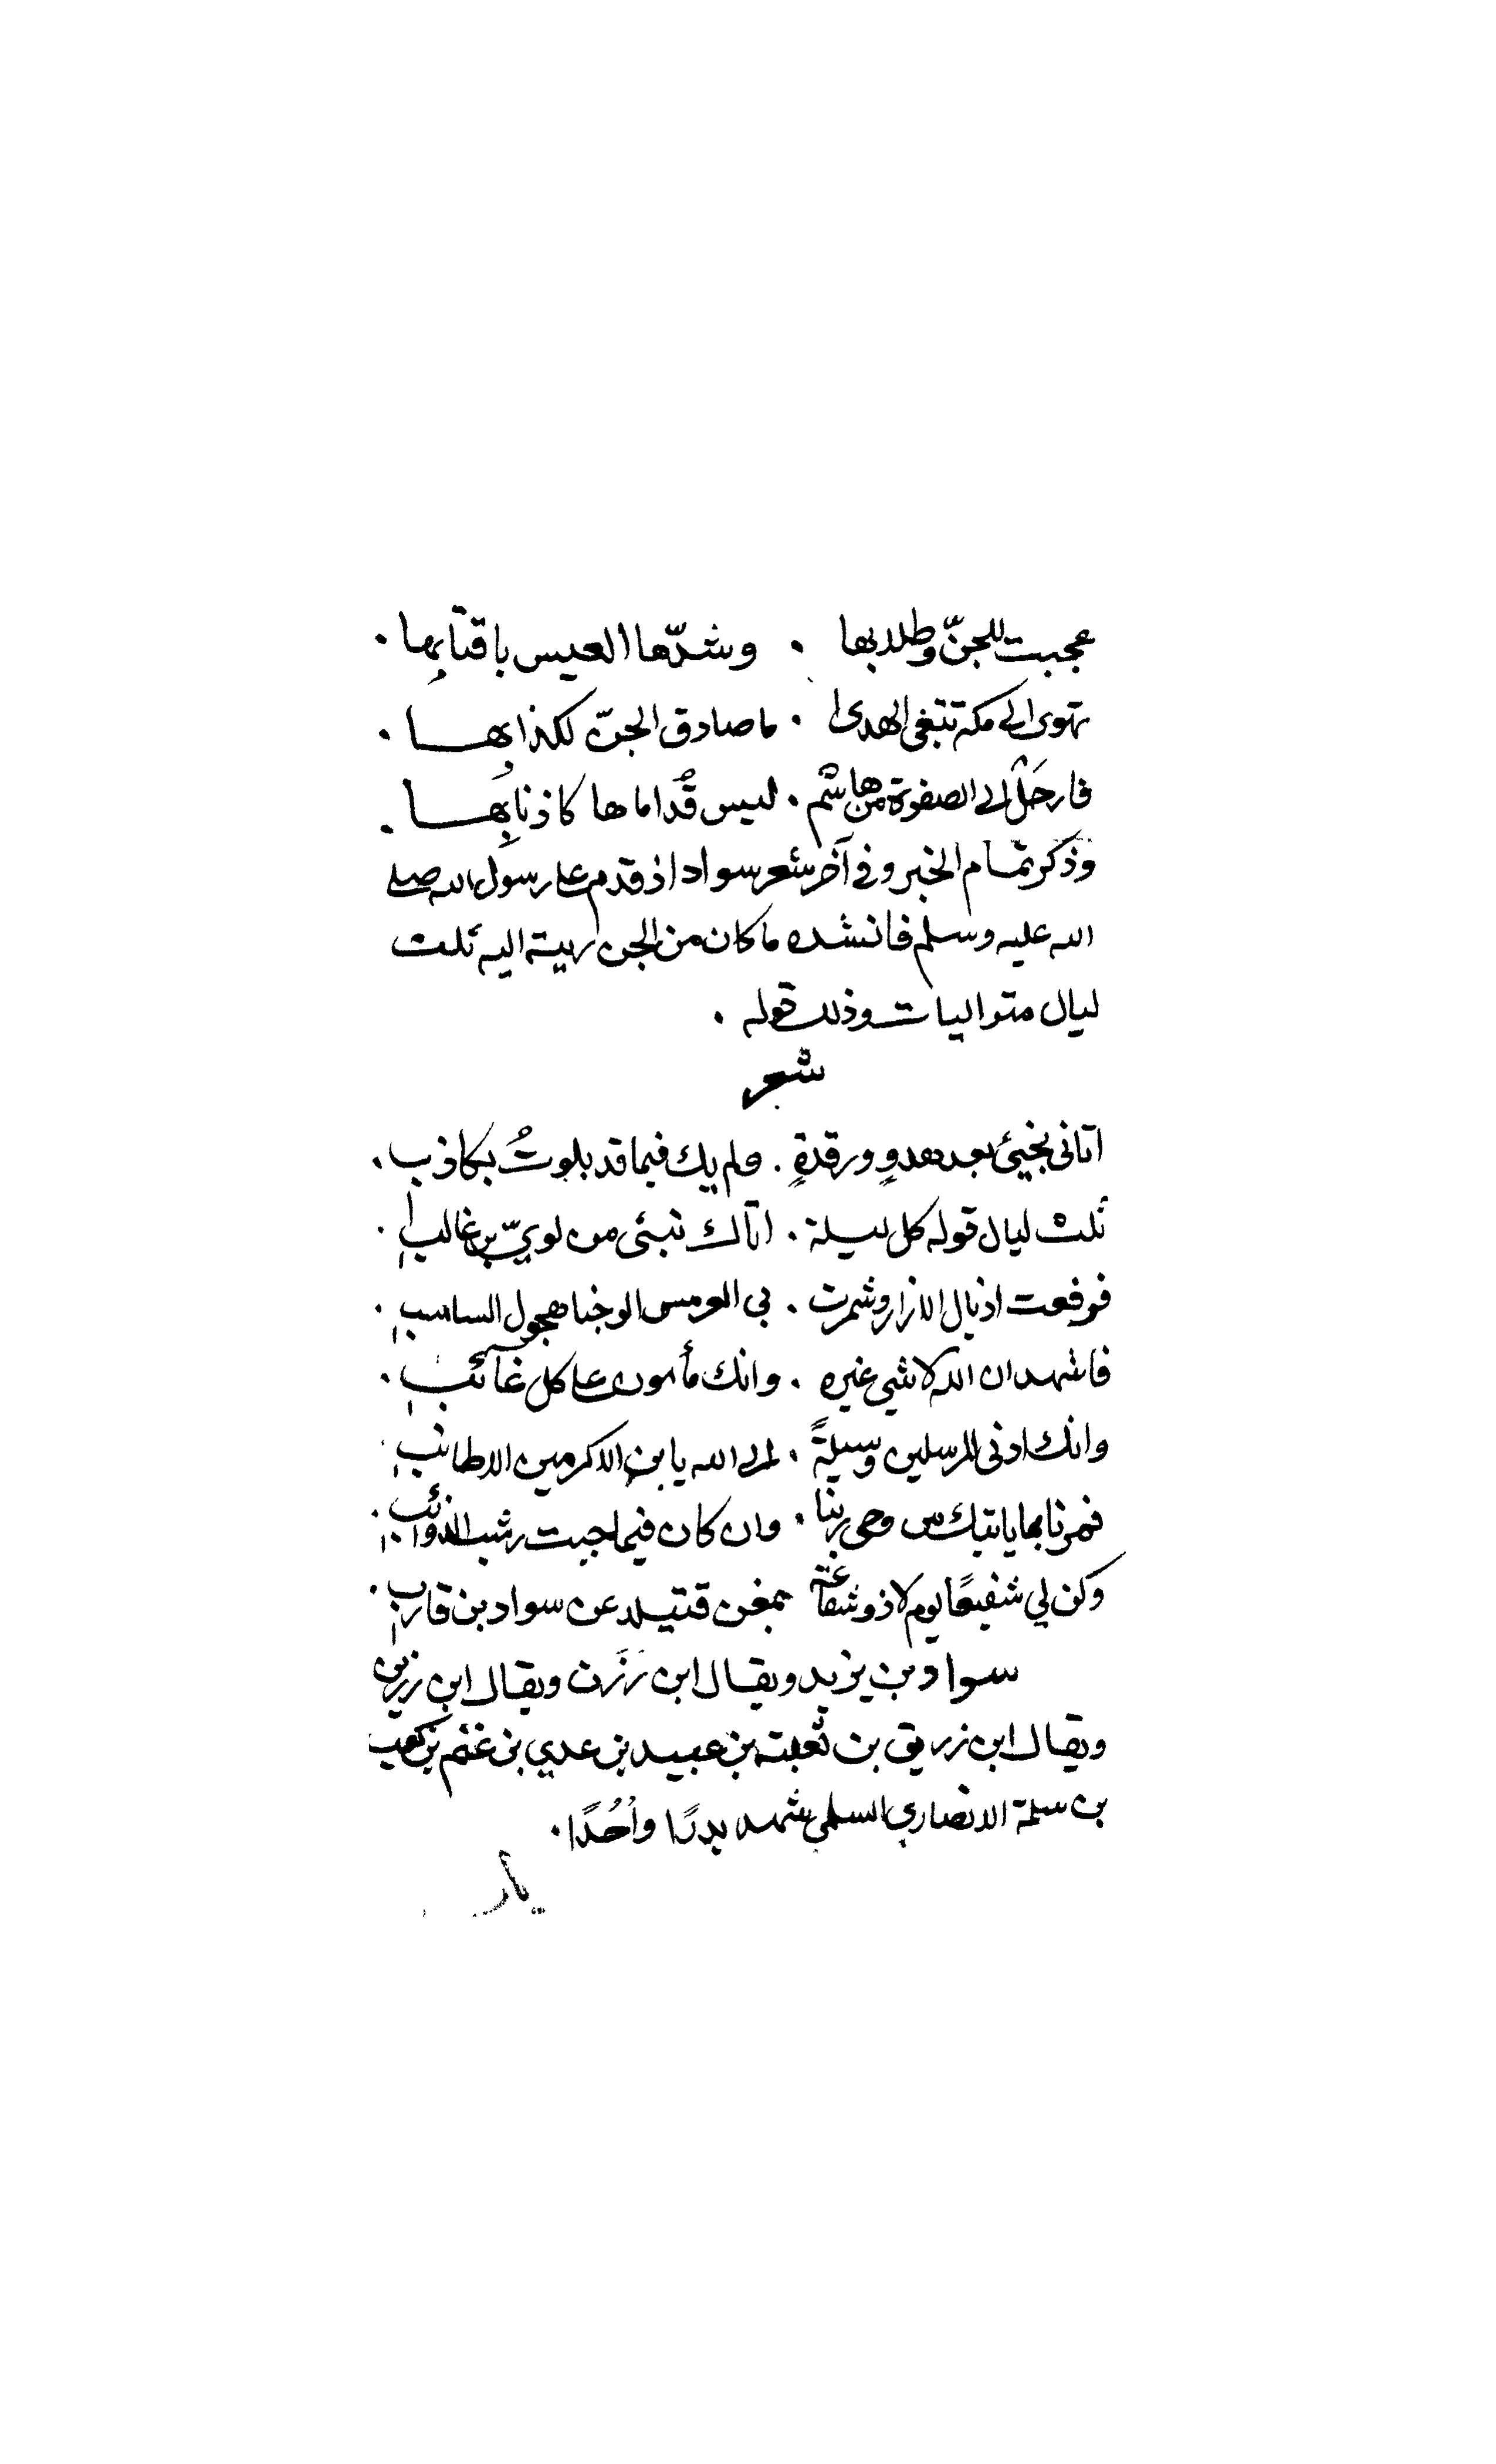 عجبت للجنّ وطلابها . وشدّها العيس باقتابها .
تهوى الى مكة تبتغى الهدى . ما صادق الجنّ ككذابها .
فارحَلْ الى الصفوة من هاشم . ليس قُداماها كاذنابِها .
وذكر تمام الخبر وفي آخر شعر سواد اذ قدم على رسول الله صلى
الله عليه وسلم فانشده ما كان من الجن رييه اليه ثلث
ليال متواليات وذلك قوله .
شعر
اتانى نجيئ بعد هدوٍ ورقدةٍ . ولم يك فيما قد بلوتُ بكاذب .
ثلث ليال قوله كل ليلة . اتاك نبئى من لويّ بن غالبٍ .
فرفعت اذيال الازار وشمرت . بي العرمس الوجنا هجول السباسبِ .
فاشهد ان الله لا شي غيره . وانك مأمون على كل غآئب .
وانك ادنى المرسلين وسيلةً . الى الله يا بن الاكرمين الاطائبِ
فمرنا بما ياتيك من وحى ربنا . وان كان فيما جيت شيب الذوائب .
وكن لي شفيعًا يوم لا ذو شفاعته بمغن فتيلا عن سواد بن قارب .
سواد بن يزيد ويقال ابن رَزْن ويقال ابن رزين
ويقال ابن زريق بن ثعلبته بن عبيد بن عدي بن غنم بن كعب
بن سلمة الانصاري السلمي شهد بدرًا واُحُدًا .